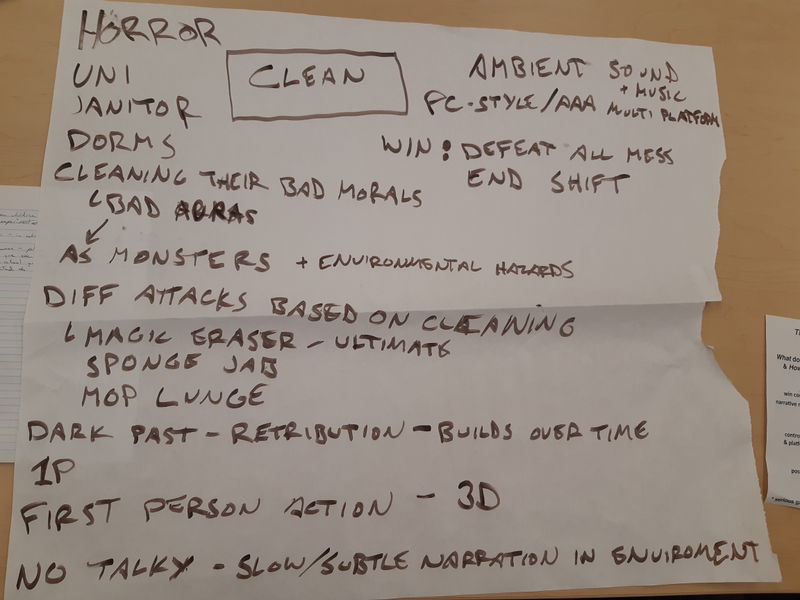 HORROR
UNI
JANITOR
DORMS
CLEAN
AMBIENT SOUND
+ MUSIC
PC-STYLE/AAA MULTI PLATFORM
WIN: DEFEAT ALL MESS
END SHIFT
CLEANING THEIR BAD MORALS
BAD AURAS
AS MONSTERS + ENVIRONMENTAL HAZARDS
DIFF ATTACKS BASED ON CLEANING
MAGIC ERASER - ULTIMATE
SPONGE JAB
MOP LUNGE
DARK PAST - RETRIBUTION - BUILDS OVER TIME
1P
FIRST PERSON ACTION - 3D
NO TALKY - SLOW/SUBTLE NARRATION IN ENVIROMENT
What do
& How
win co
narrative
contro
& platf
pos